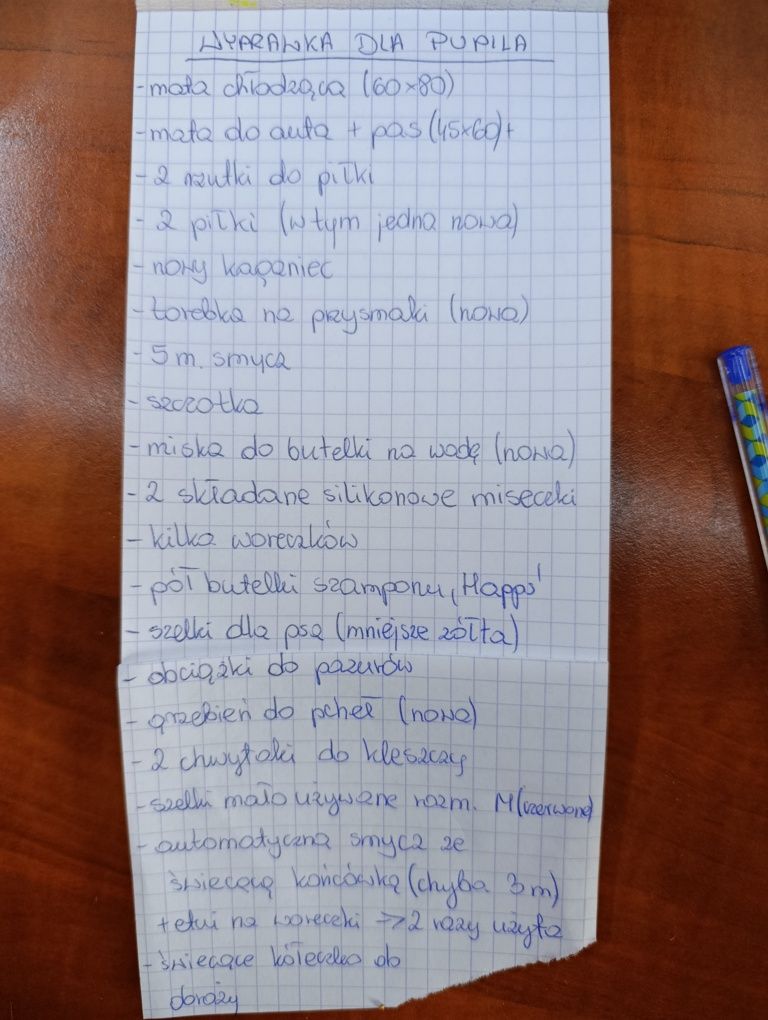 WYPRAWKA DLA PUPILA
- mata chłodząca (60x80)
- mata do auta + pas (45x60)+
- 2 rzutki do piłki
- 2 piłki (w tym jedna nowa)
- nowy kaganiec
- torebka na przysmaki (nowa)
- 5 m. smycz
- szczotka
- miska do butelki na wodę (nowa)
- 2 składane silikonowe miseczki
- kilka woreczków
- pół butelki szamponu, Happs'
- szelki dla psa (mniejsze żółta)
- obciążki do pazurów
- grzebień do pcheł (nowa)
- 2 chwytaki do kleszczy
- szelki mało używane rozm. M (czerwone)
- automatyczna smycz ze
świecącą końcówką (chyba 3 m)
+ etui na woreczki => 2 razy użyta
- świecące kółeczko do
doroży